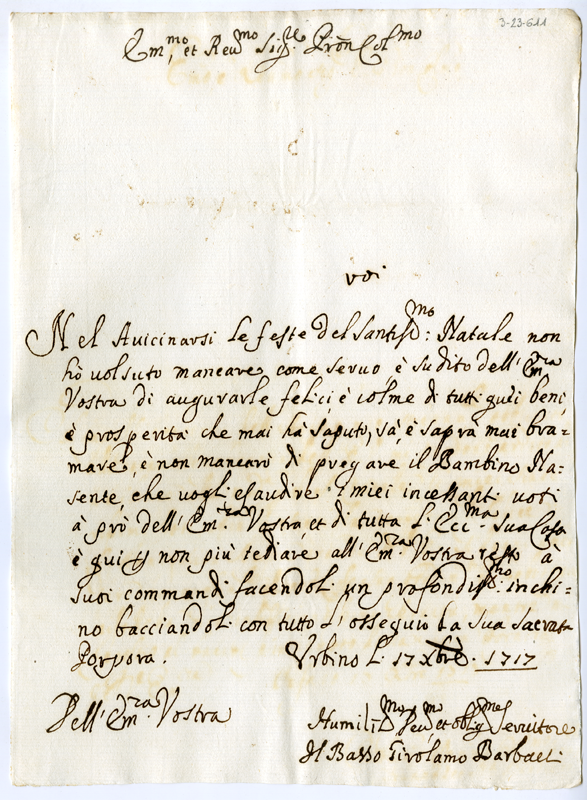 3-23-611
Em.mo et Reu.mo Sig.re Prōn Col.mo
voi
Nel Auicinarsi le feste del Santiss.mo: Natale non
hò uolsuto mancare come seruo è sudito dell' Em.za
Vostra di augurarle felici, è colme di tutti quei beni,
è prosperità che mai hà saputo, sà, è saprà mai bra-
mare, è non mancarò di pregare il Bambino Na-
sente, che uogli esaudire i miei incessanti uoti
à prò dell' Em.za Vostra, et di tutta l' Ecc.ma sua Casa
è qui non più tediare all' Em.za Vostra resto à
suoi commandi facendoli un profondiss.mo: inchi-
no bacciandoli con tutto l' ossequio la sua sacrata
Porpora. Vrbino li 17 Xbre. 1717
Dell' Em.za Vostra
Humiliss.mo Deu.mo et oblig.mo Seruitore
Il Basso Girolamo Barbaeti